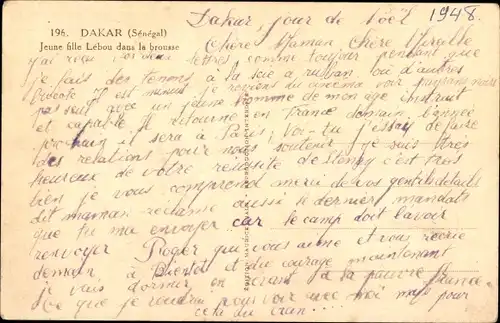 196. DAKAR (Sénégal)
Jeune fille Lébou dans la brousse
Dakar, jour de Noël 1948
Chère Maman Chère Mireille
j'ai reçu vos deux lettres, comme toujours pendant que
je fais des tenons à la scie à ruban, ou d'autres
minuit je reviens du cinéma voir
pas seul avec un jeune homme de mon age, instruit
et capable il retourne en France demain. L'année
prochain il sera à Paris; Vois-tu j'essay de faire
des relations pour nous soutenir. je suis très
heureux de votre réussite de c'est très
bien je vous comprend merci de vos gentils détails
dit maman réclame aussi le dernier mandat
que tu m'a envoyer car le camp doit l'avoir
renvoyer Roger qui vous aime et vous écrire
demain à Bientôt et du courage maintenant
je vais dormir en à la pauvre France
Ce que je voudrai pouvoir avec moi mais pour
cela du cran...